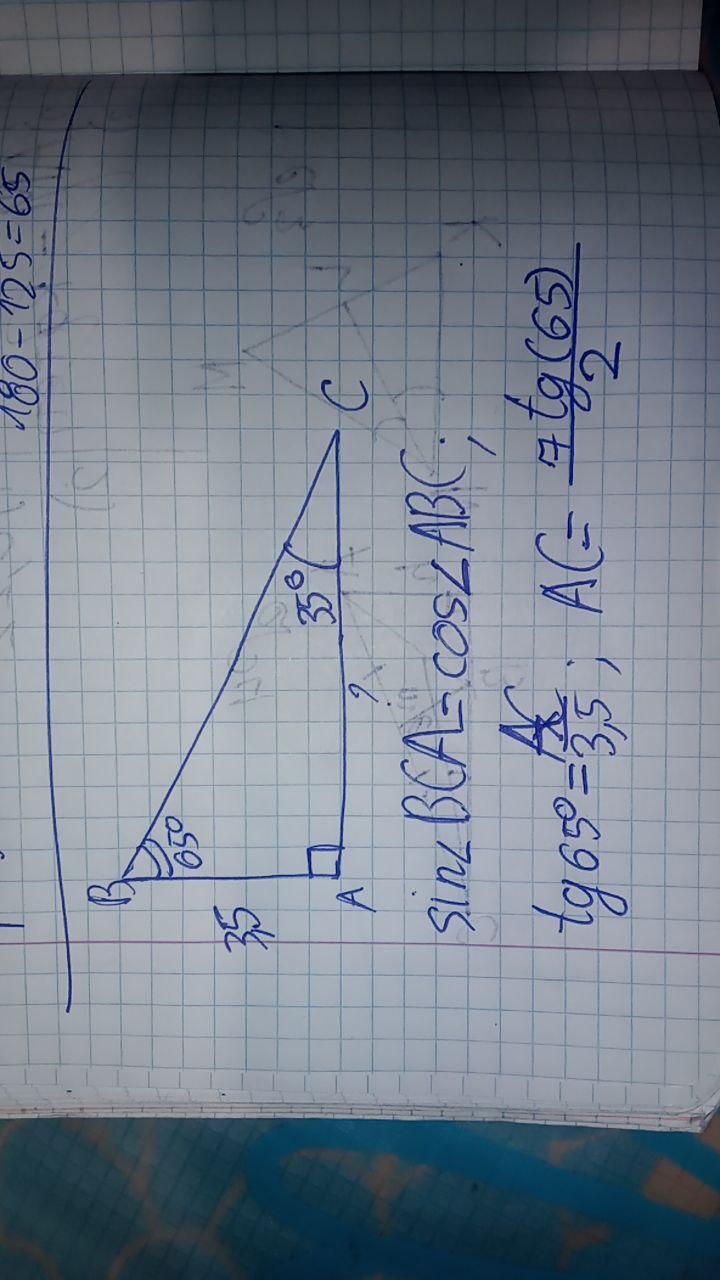 180-125=65
B
65°
3,5
35°
A
?
C
Sin∠BCA=cos∠ABC;
tg65°=AC/3,5; AC=7tg(65)/2